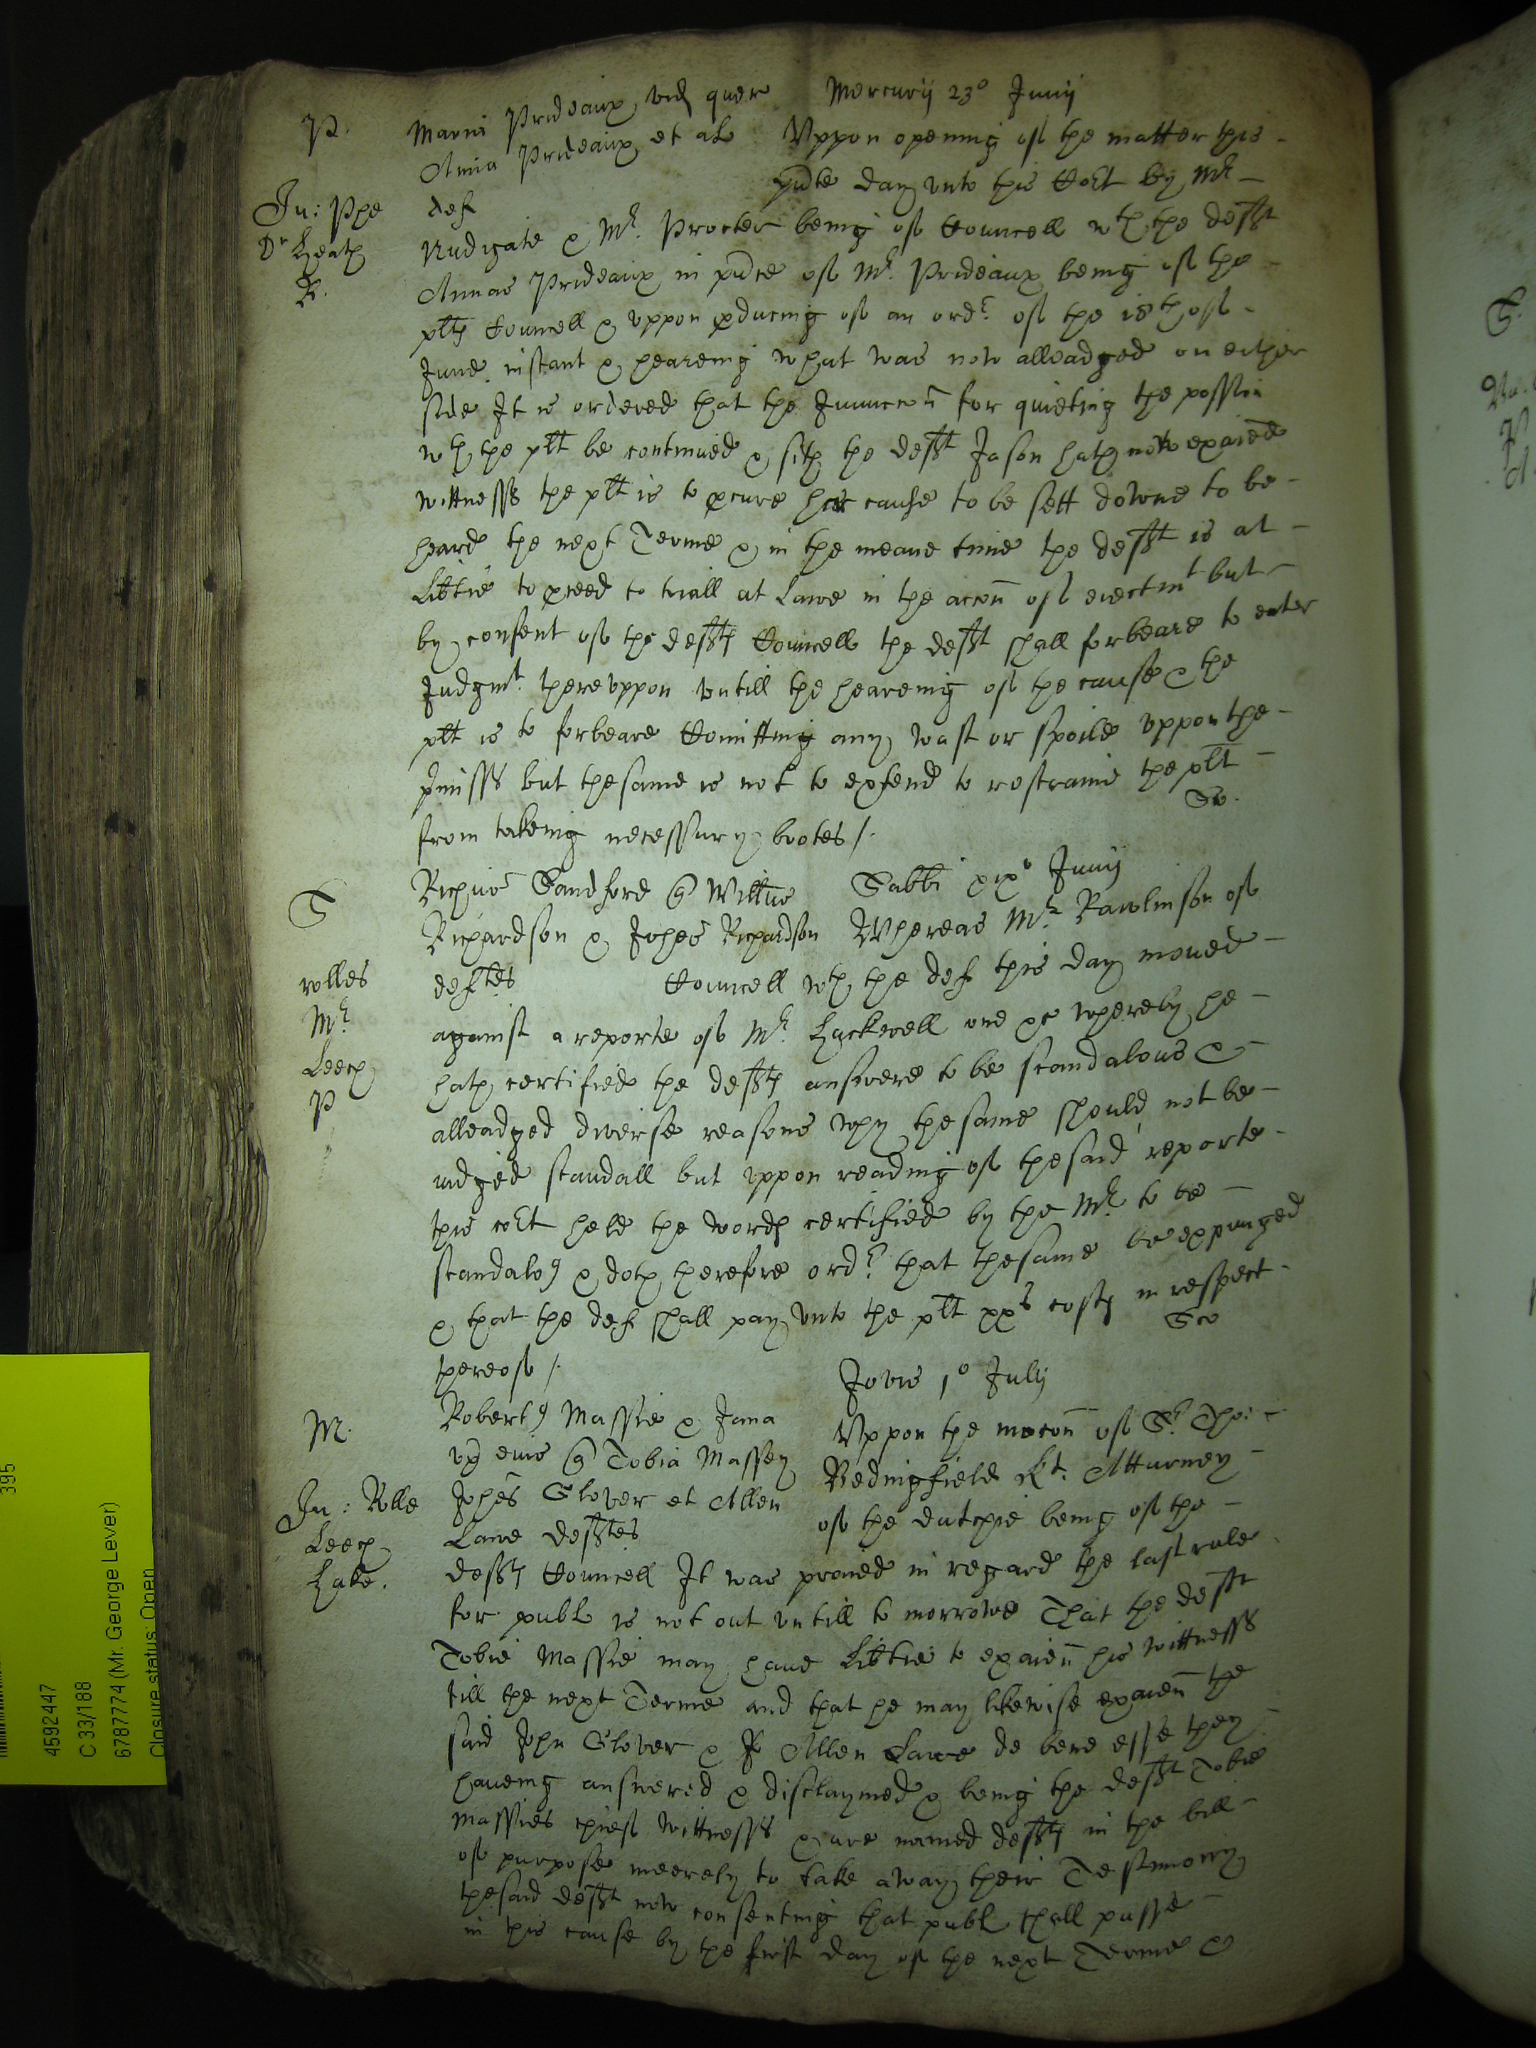 P. Maria Prideaux vid quer Mercurij 23º Junij
Anna Prideaux et al Vppon opening of the matter this
def pñte day vnto this Cort by Mr
In: Phe
Dr Heath
R.
Nudigate & Mr. Procter being of Councell wth the deft
Annas Prideaux in pñce of Mr. Prideaux being of the
plts Councell & vppon pducing of an ordr of the isth of
June instant & heareing what was now alleadged on either
side It is ordered that the Iniunccon for quieting the possion
wth the plt be continued & sith the deft Jason hath now exaied
wittnesses the plt is to pcure his cause to be sett downe to be
heard the next Terme & in the meane time the deft is at
Libtie to pceed to triall at Lawe in the accon of eiectmt but
by consent of the defts Councell the deft shall forbeare to enter
Judgmt. therevppon vntill the heareing of the cause & the
plt is to forbeare Comitting any wast or spoile vppon the
pmisses but the same is not to extend to restraine the plt
from takeing necessary bootes /.
S Richus Sandford Willus Sabbti xixº Junij
Richardson & Johes Richardson Whereas Mr Rawlinson of
deftes Councell wth the def this day moued
rolles
Mr.
Leech
P
against a reporte of Mr. Hackwell one &c whereby he
hath certified the defts answere to be scandalous &
alleadged diverse reasons why the same should not be
iudged scandall but vppon reading of the said reporte
this cort held the words certified by the Mr. to be
scandalos & doth therefore ordr that the same be expunged
& that the def shall pay vnto the plt xxs costs in respect
thereof /.
M. Roberts Massie & Jana Jovis 1º July
vx eius Tobia Massey Vppon the mocon of Sr. Tho:
Johes Glover et Allen Bedingfield Kt. Atturney
Lawe deftes of the dutchie being of the
In: Rolle
Leech
Hake.
defts Councell It was prayed in regard the last rule
for publ is not out vntill to morrowe That the deft
Tobie Massie may haue Libtie to exaien his wittnesses
till the next Terme and that he may likewise exaien the
said John Glover & Allen Lawe de bene esse they
haueing answered & disclaymed & being the deft Tobie
Massies chief wittnesses & are named defts in the bill
of purpose meerely to take away their Testimony
the said deft now consenting that publ shall passe
in this cause by the first day of the next Terme &
395
4592447
C 33/188
6787774 (Mr. George Lever)
Closure status: Open